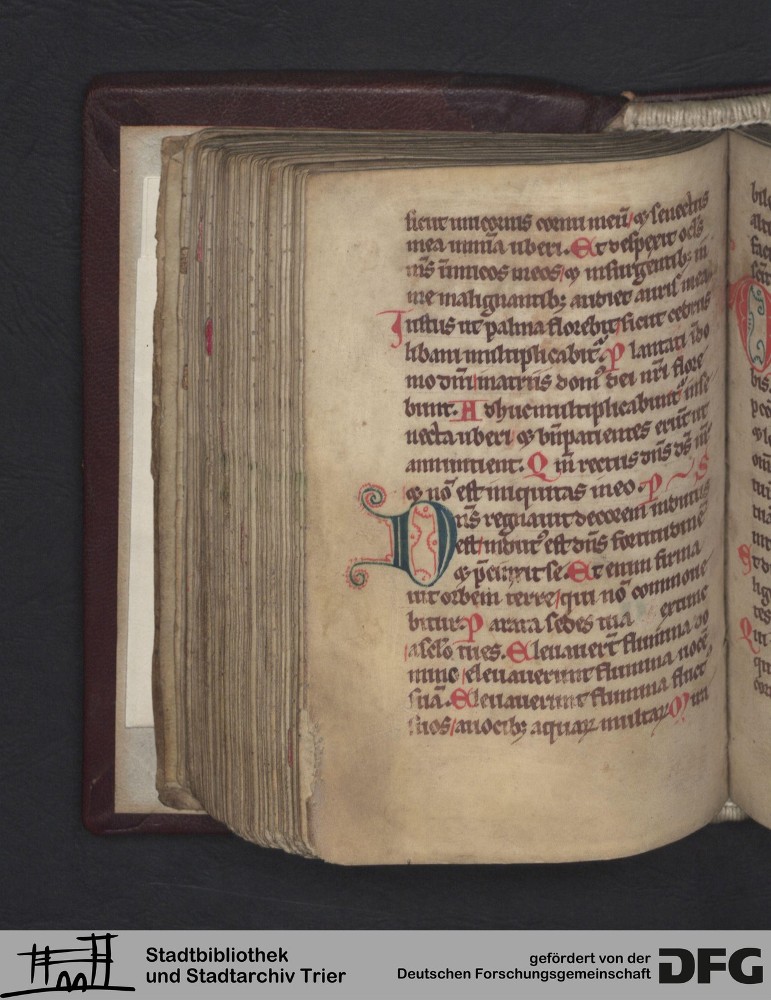 sicut unicornis cornu meū / ⁊ senectus
mea in mīa uberi. Et despexit ocl's
m̄s īimicos meos / ⁊ in surgentibꝫ in
me malignantibꝫ audiet auris mea
Iustus ut palma florebit / sicut cedrus
libani multiplicabit̄. Plantati ī do
mo dn̄i / in atriis dom' dei nr̄i flore
bunt. Adhuc multiplicabunt̄ in se
necta uberi / ⁊ bn̄ patientes erūt ut
annuntient. Qm̄ rectus dn̄s ds̄ nr̄
⁊ nō est iniquitas in eo. PS
Dn̄s regnauit decorem indutus
est / indut' est dn̄s fortitudinē
⁊ p̄cinxit se. Et enim firma
uit orbem terre / qui nō commoue
bitur. Parata sedes tua ex tunc
a sclo tu es. Eleuauert̄ flumina do
mine / eleuauerunt flumina uocē
suā. Eleuauerunt flumina fluct
suos / a uocibꝫ aquaꝝ multaꝝ. Mira
Stadtbibliothek
und Stadtarchiv Trier
gefördert von der
Deutschen Forschungsgemeinschaft
DFG